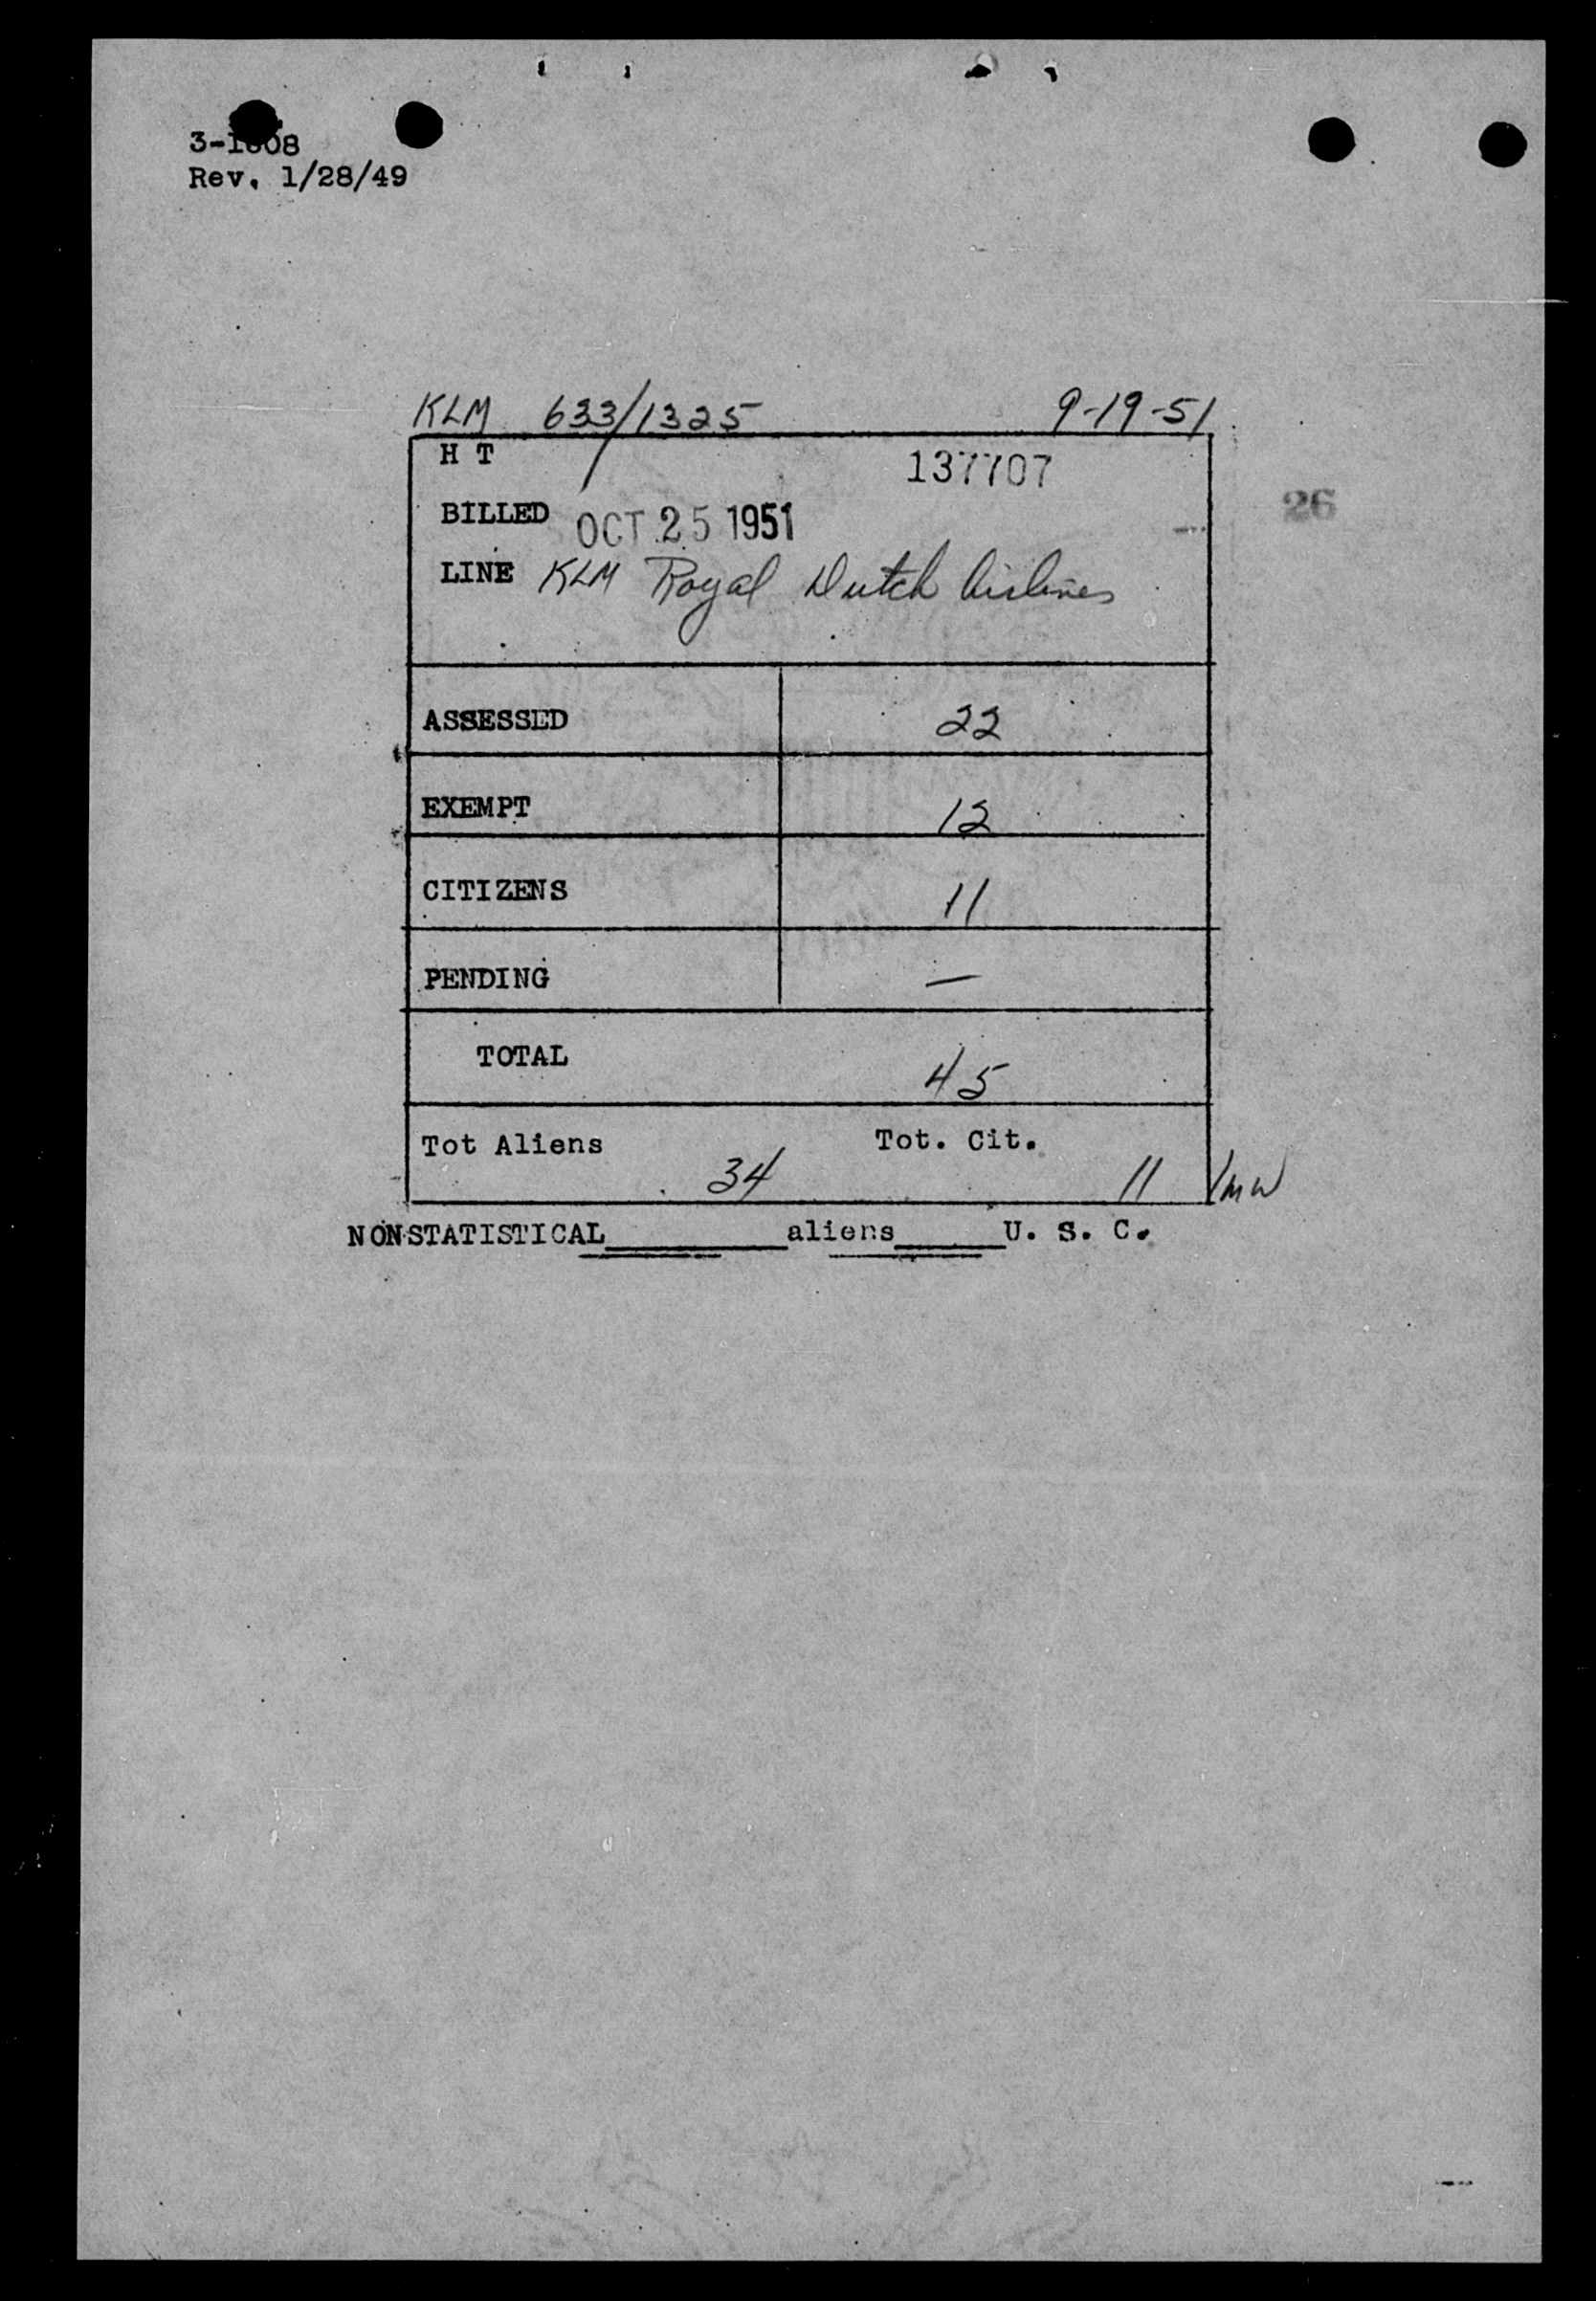 Rev. 1/28/49
KLM 633/1325 9-19-51
H T 137707
BILLED OCT 25 1951
26
LINE KLM Royal Dutch Airlines
ASSESSED 22
EXEMPT 12
CITIZENS 11
PENDING —
TOTAL 45
Tot Aliens 34 Tot. Cit. 11 /mw
NONSTATISTICAL_________aliens______U. S. C.